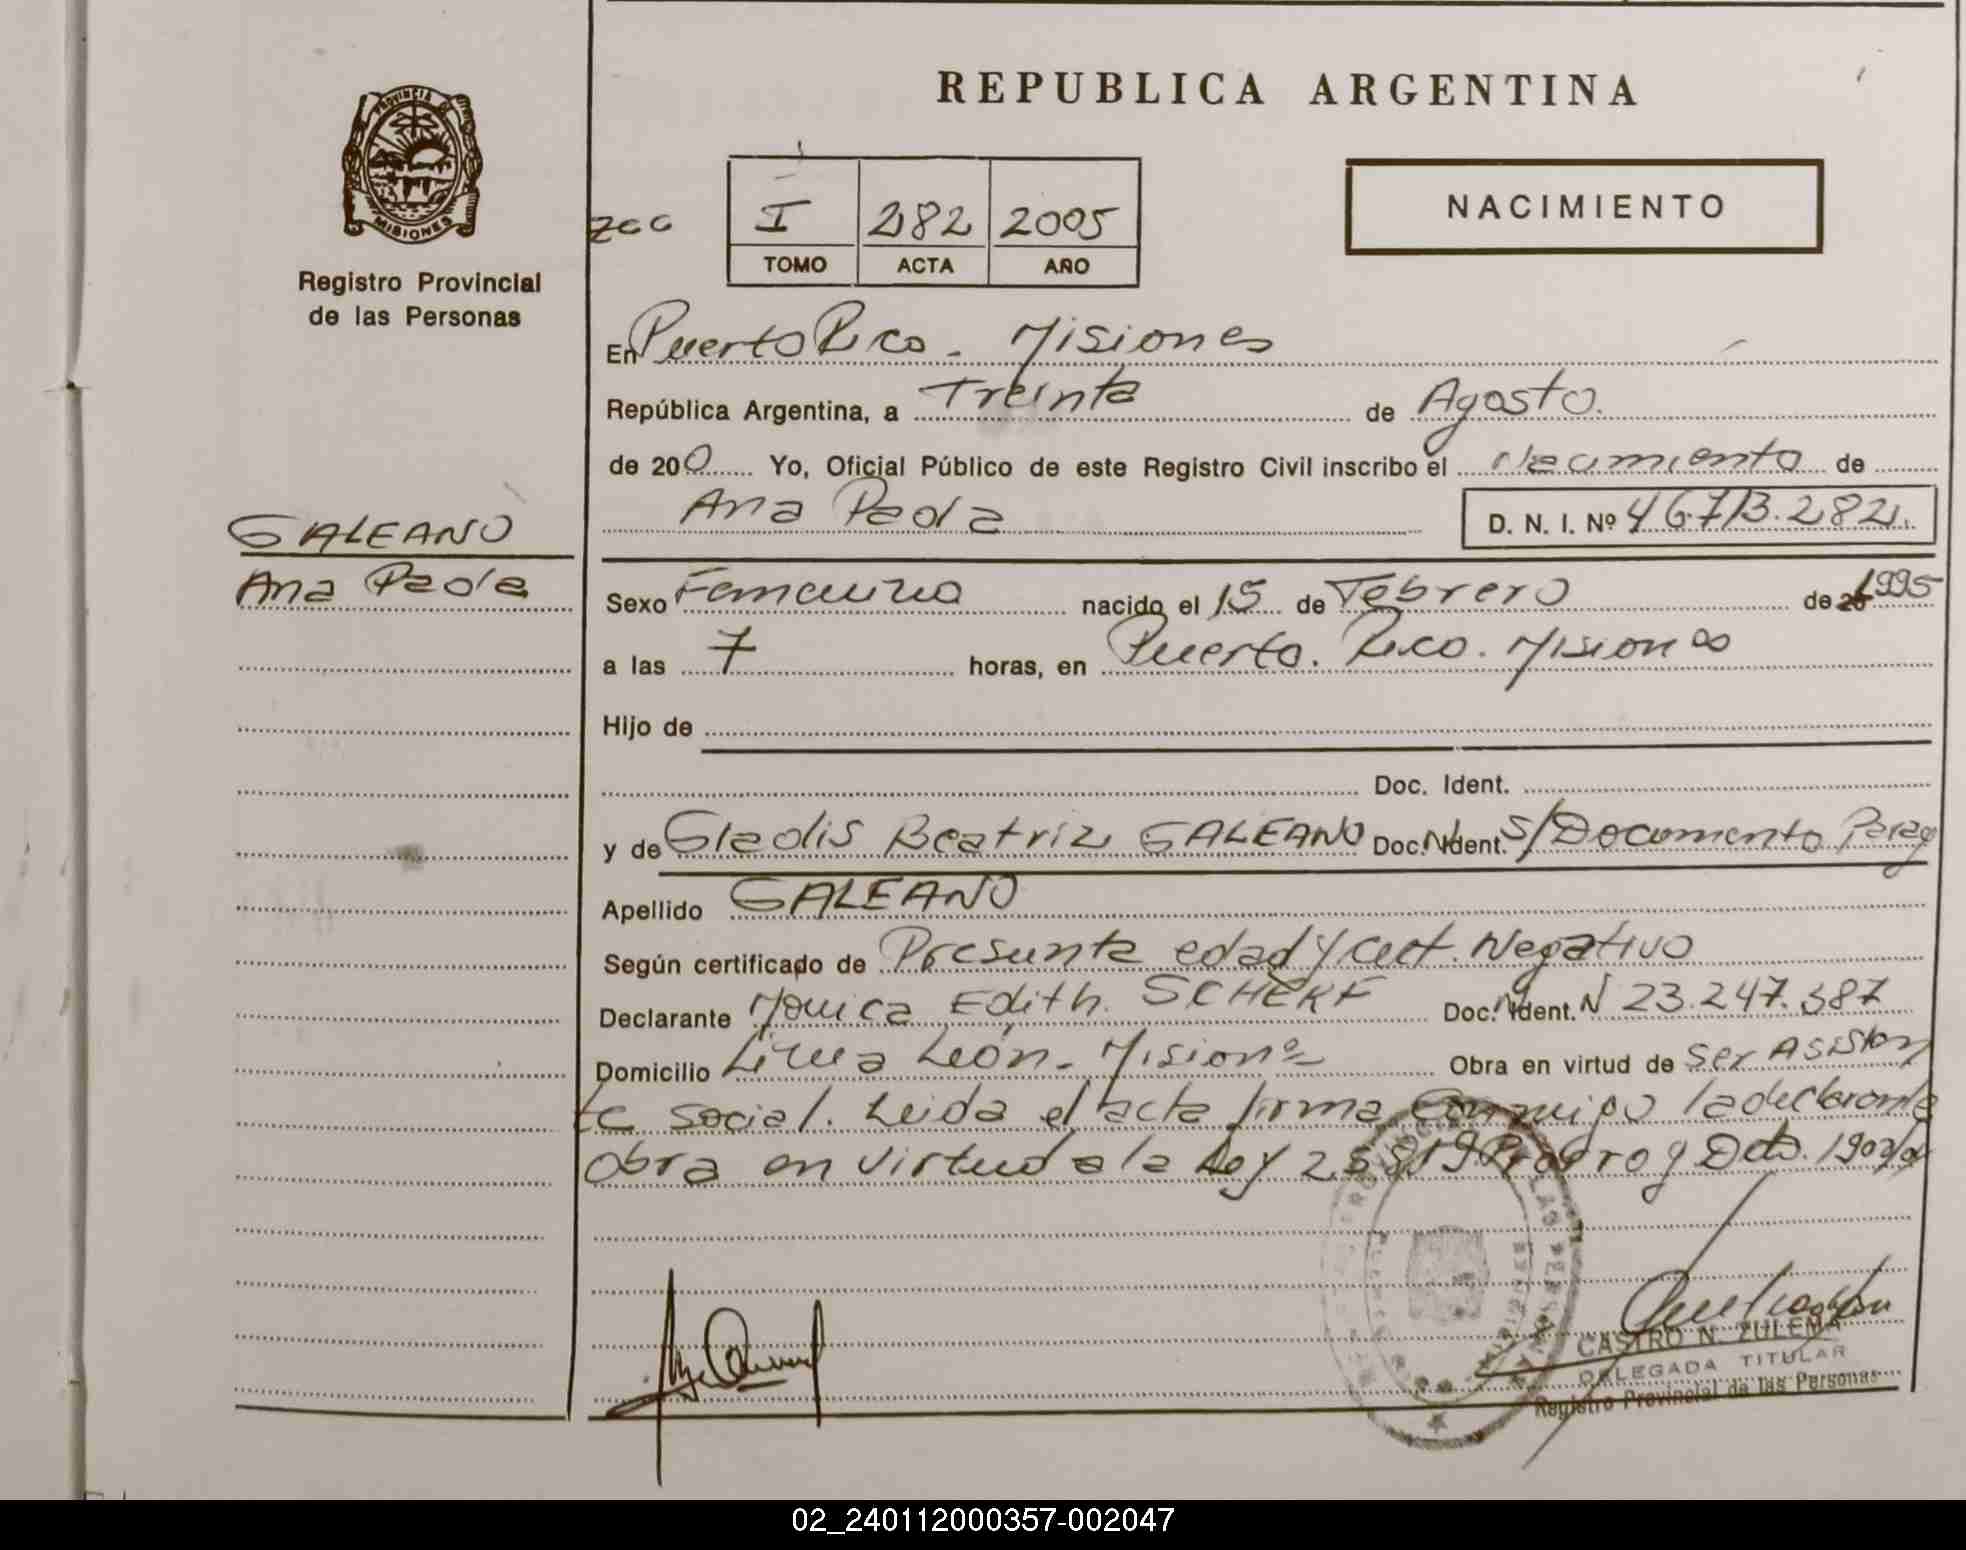 REPUBLICA ARGENTINA
PROVINCIA DE
MISIONES
Registro Provincial
de las Personas
NACIMIENTO
200
I 282 2005
TOMO ACTA AÑO
En Puerto Rico. Misiones
República Argentina, a Treinta de Agosto.
de 200 Yo, Oficial Público de este Registro Civil inscribo el Nacimiento de
Ana Paola D. N. I. Nº 46.713.282.
GALEANO
Ana Paola
Sexo Femenino nacido el 15 de Febrero de 1995
a las 7 horas, en Puerto. Rico. Misiones
Hijo de
Doc. Ident.
y de Gladis Beatriz GALEANO Doc. Ident. S/Documento Parag
Apellido GALEANO
Según certificado de Presunta edad y cert. Negativo
Declarante Monica Edith. SCHERF Doc. Ident. N 23.247.387
Domicilio Linea León. Misiones Obra en virtud de ser Asisten
te social. Leida el acta firma conmigo la declarante
obra en virtud a la Ley 25819 y Dcto.
CASTRO N. ZULEMA
DELEGADA TITULAR
Registro Provincial de las Personas
02_240112000357-002047